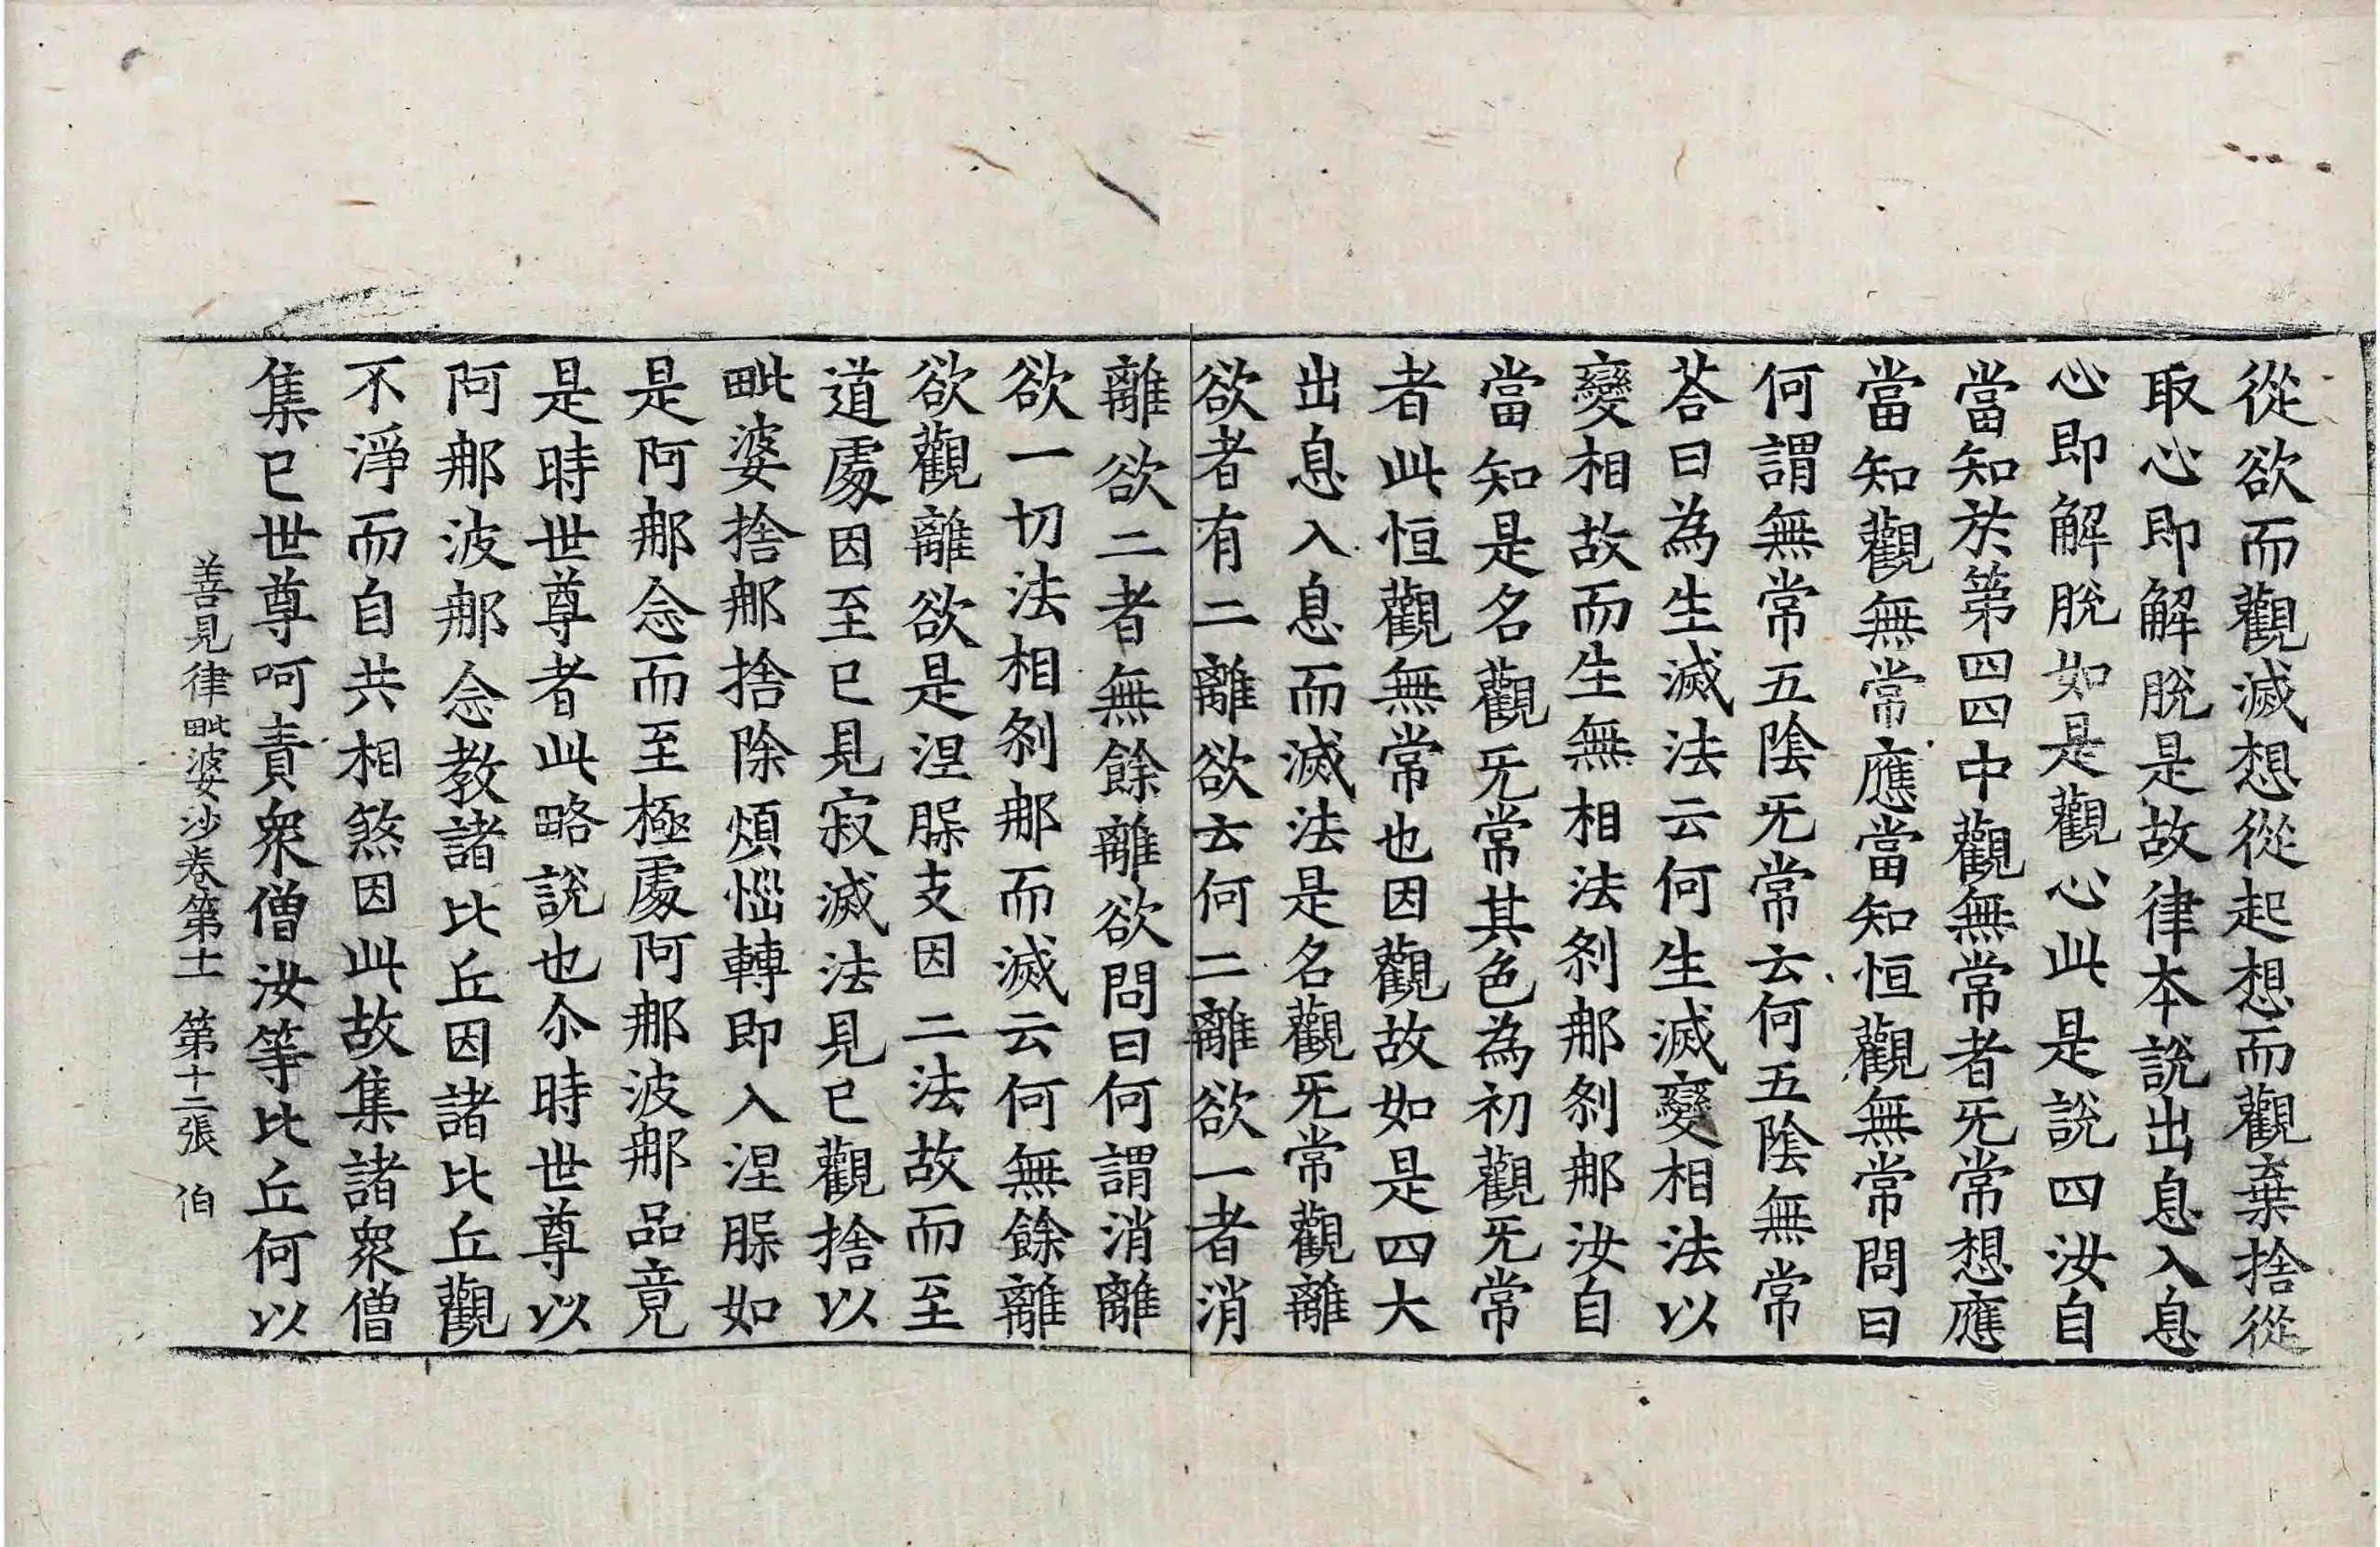 從欲而觀滅想從起想而觀棄捨從
取心即解脫是故律本說出息入息
心即解脫如是觀心此是說四汝自
當知於第四四中觀無常者旡常想應
當知觀無常應當知恒觀無常問曰
何謂無常五陰旡常云何五陰無常
荅曰為生滅法云何生滅變相法以
變相故而生無相法剎那剎那汝自
當知是名觀旡常其色為初觀旡常
者此恒觀無常也因觀故如是四大
出息入息而滅法是名觀旡常觀離
欲者有二離欲云何二離欲一者消
離欲二者無餘離欲問曰何謂消離
欲一切法相剎那而滅云何無餘離
欲觀離欲是涅脲支因二法故而至
道處因至已見寂滅法見已觀捨以
毗婆捨那捨除煩惱轉即入涅脲如
是阿那念而至極處阿那波那品竟
是時世尊者此略說也尒時世尊以
阿那波那念教諸比丘因諸比丘觀
不淨而自共相煞因此故集諸衆僧
集已世尊呵責衆僧汝等比丘何以
善見律毗婆沙卷第十一　第十二張　伯